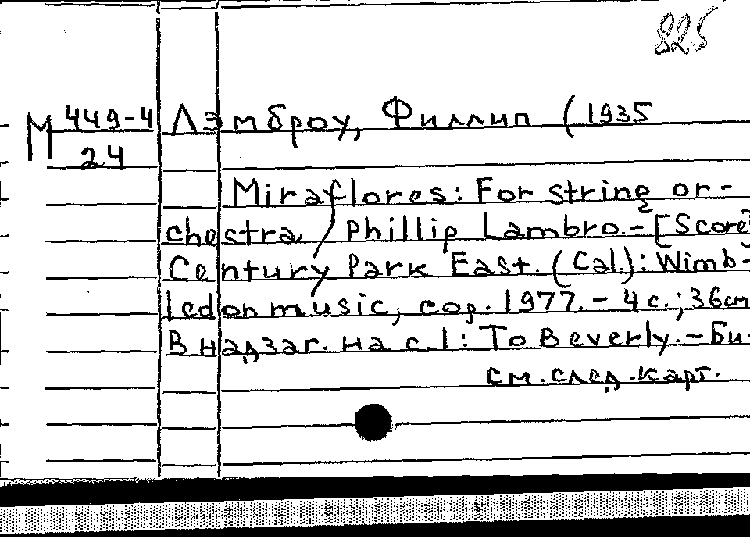 825
М 449-4 Лэмброу, Филлип (1935
24
Miraflores: For string or-
chestra / Phillip Lambro.-[Score]
Century Park East. (Cal.): Wimb-
ledon music, cop. 1977.- 4 с.; 36см
В надзаг. на с.1: To Beverly.-Би-
см. след. карт.